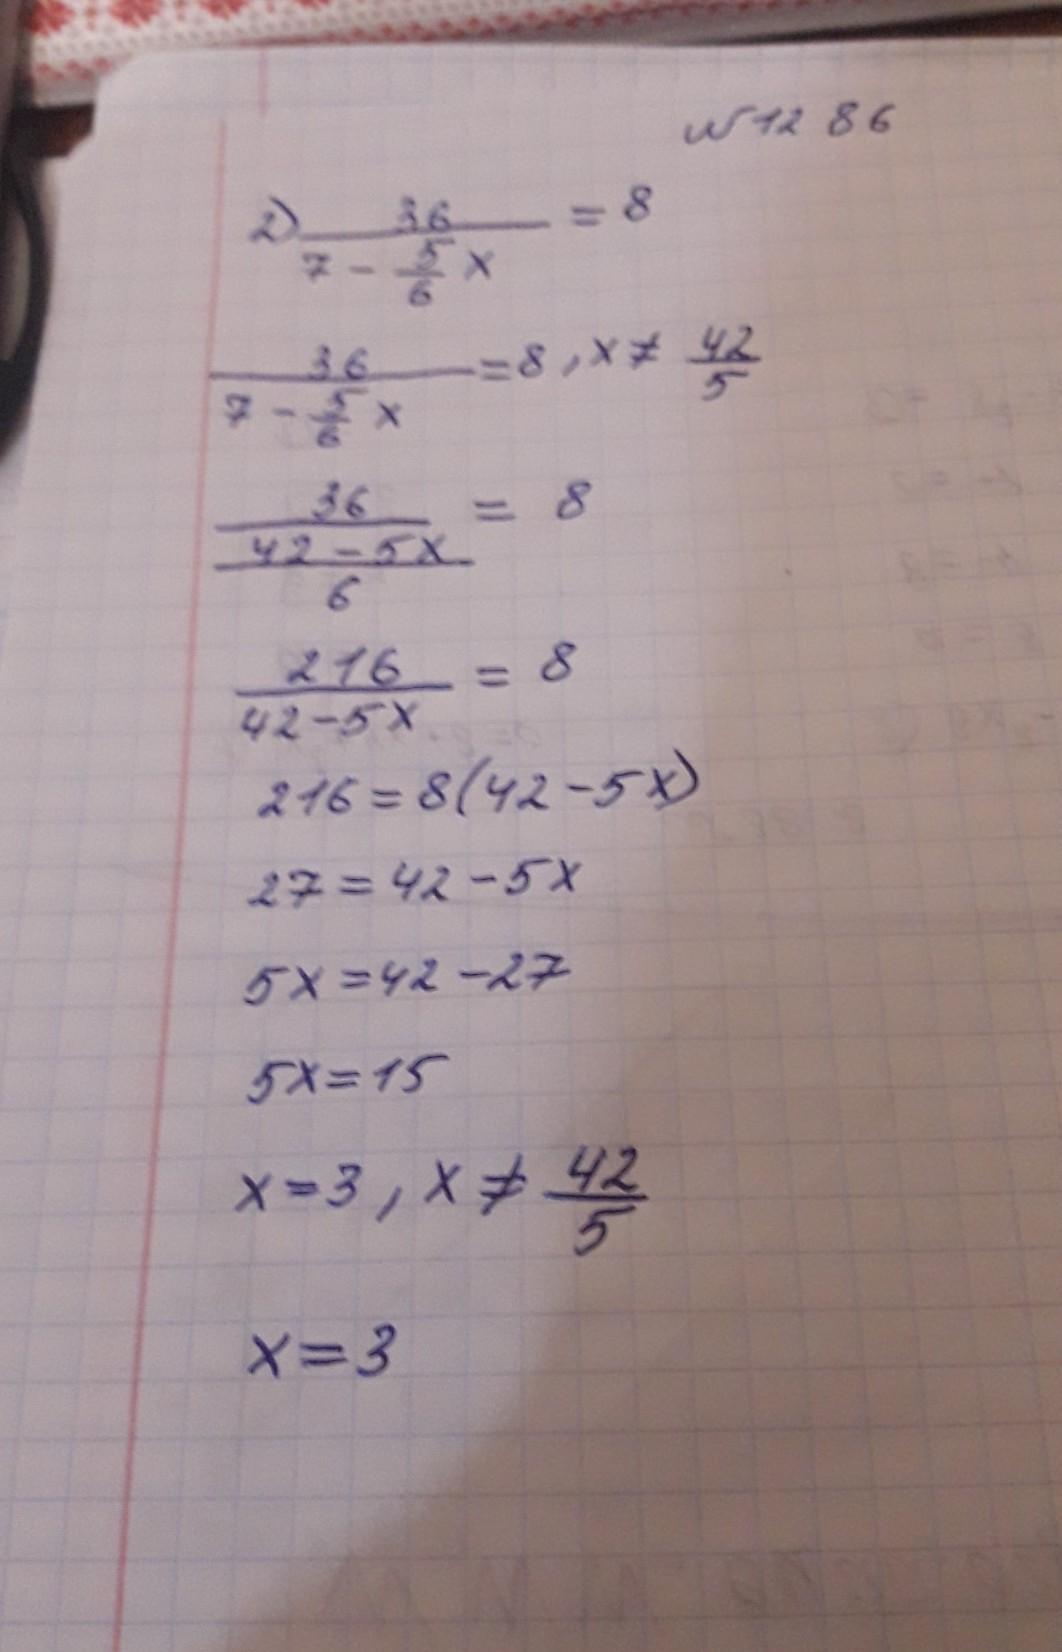 №1286
2) 36/(7 - 5/6 x) = 8
36/(7 - 5/6 x) = 8, x ≠ 42/5
36/((42 - 5x)/6) = 8
216/(42 - 5x) = 8
216 = 8(42 - 5x)
27 = 42 - 5x
5x = 42 - 27
5x = 15
x = 3, x ≠ 42/5
x = 3